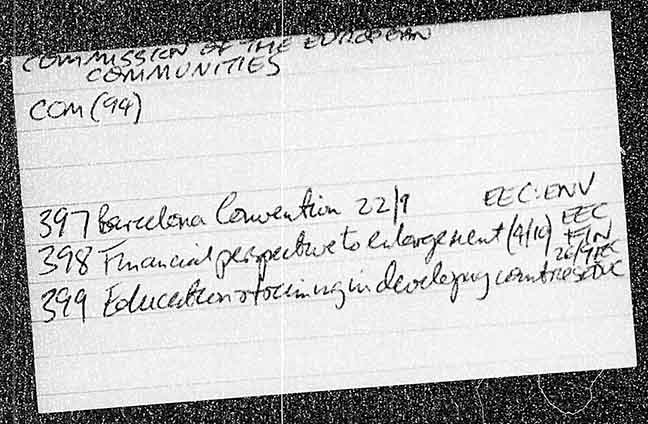 COMMISSION OF THE EUROPEAN
COMMUNITIES
COM (94)
397 Barcelona Convention 22/9 EEC:ENV
398 Financial perspective to enlargement (4/10) EEC FIN
399 Education & training in developing countries 26/9 EEC